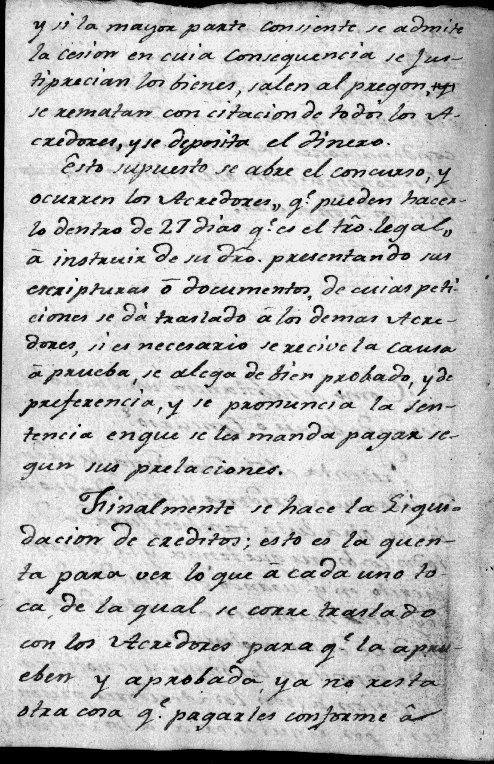 y si la mayor parte consiente se admite
la cesion en cuia consequencia se jus-
tiprecian los bienes, salen al pregon,
se rematan con citacion de todos los A-
credores, y se deposita el dinero.
Esto supuesto se abre el concurso, y
ocurren los Acredores,, q.ͤ pueden hacer-
lo dentro de 27 dias q.ͤ es el tr̃o. legal,,
â instruir de su dr̃o. presentando sus
escripturas ô documentos, de cuias peti-
ciones se dà traslado â los demas Acre-
dores, si es necesario se recive la causa
â prueba, se alega de bien probado, y de
preferencia, y se pronuncia la sen-
tencia en que se les manda pagar se-
gun sus prelaciones.
Finalmente se hace la Liqui-
dacion de creditos; esto es la quen-
ta para ver lo que â cada uno to-
ca, de la qual se corre traslado
con los Acredores para q.ͤ la âpru-
eben y aprobada, ya no resta
otra cosa q.ͤ pagarles conforme â